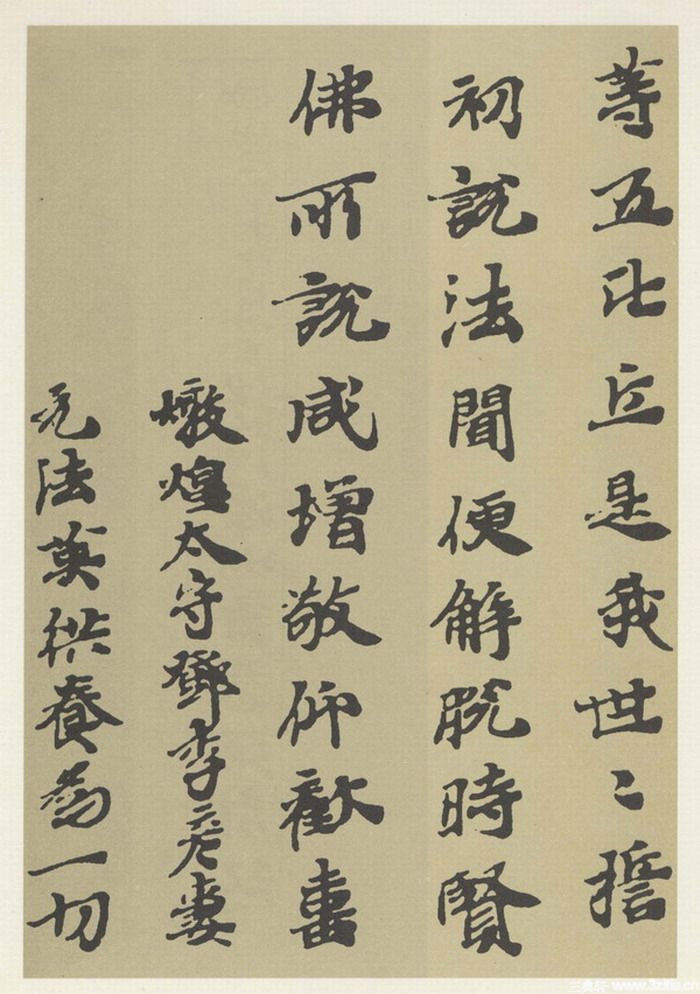 等五比丘是我世々誓
初說法聞便解脫時賢
佛所說咸增敬仰歡喜
燉煌太守鄧季彥妻
元法英供養為一切